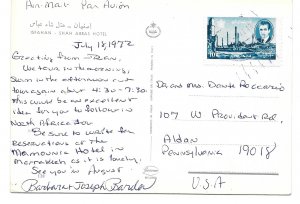 Air Mail Par Avion
ISFAHAN - SHAH ABBAS HOTEL
July 18, 1972
Greetings from Iran.
We tour in the morning,
swim in the afternoon and
tour again about 4:30 - 7:30.
This would be an excellent
idea for you to follow in
North Africa too.
Be sure to write for
reservations at the
Mamounia Hotel in
Marrakech as it is lovely.
See you in August
Barbara + Joseph Barden
10
Dr and Mrs. Dante
107 W Provident Rd.
Aldan
Pennsylvania 19018
U.S.A